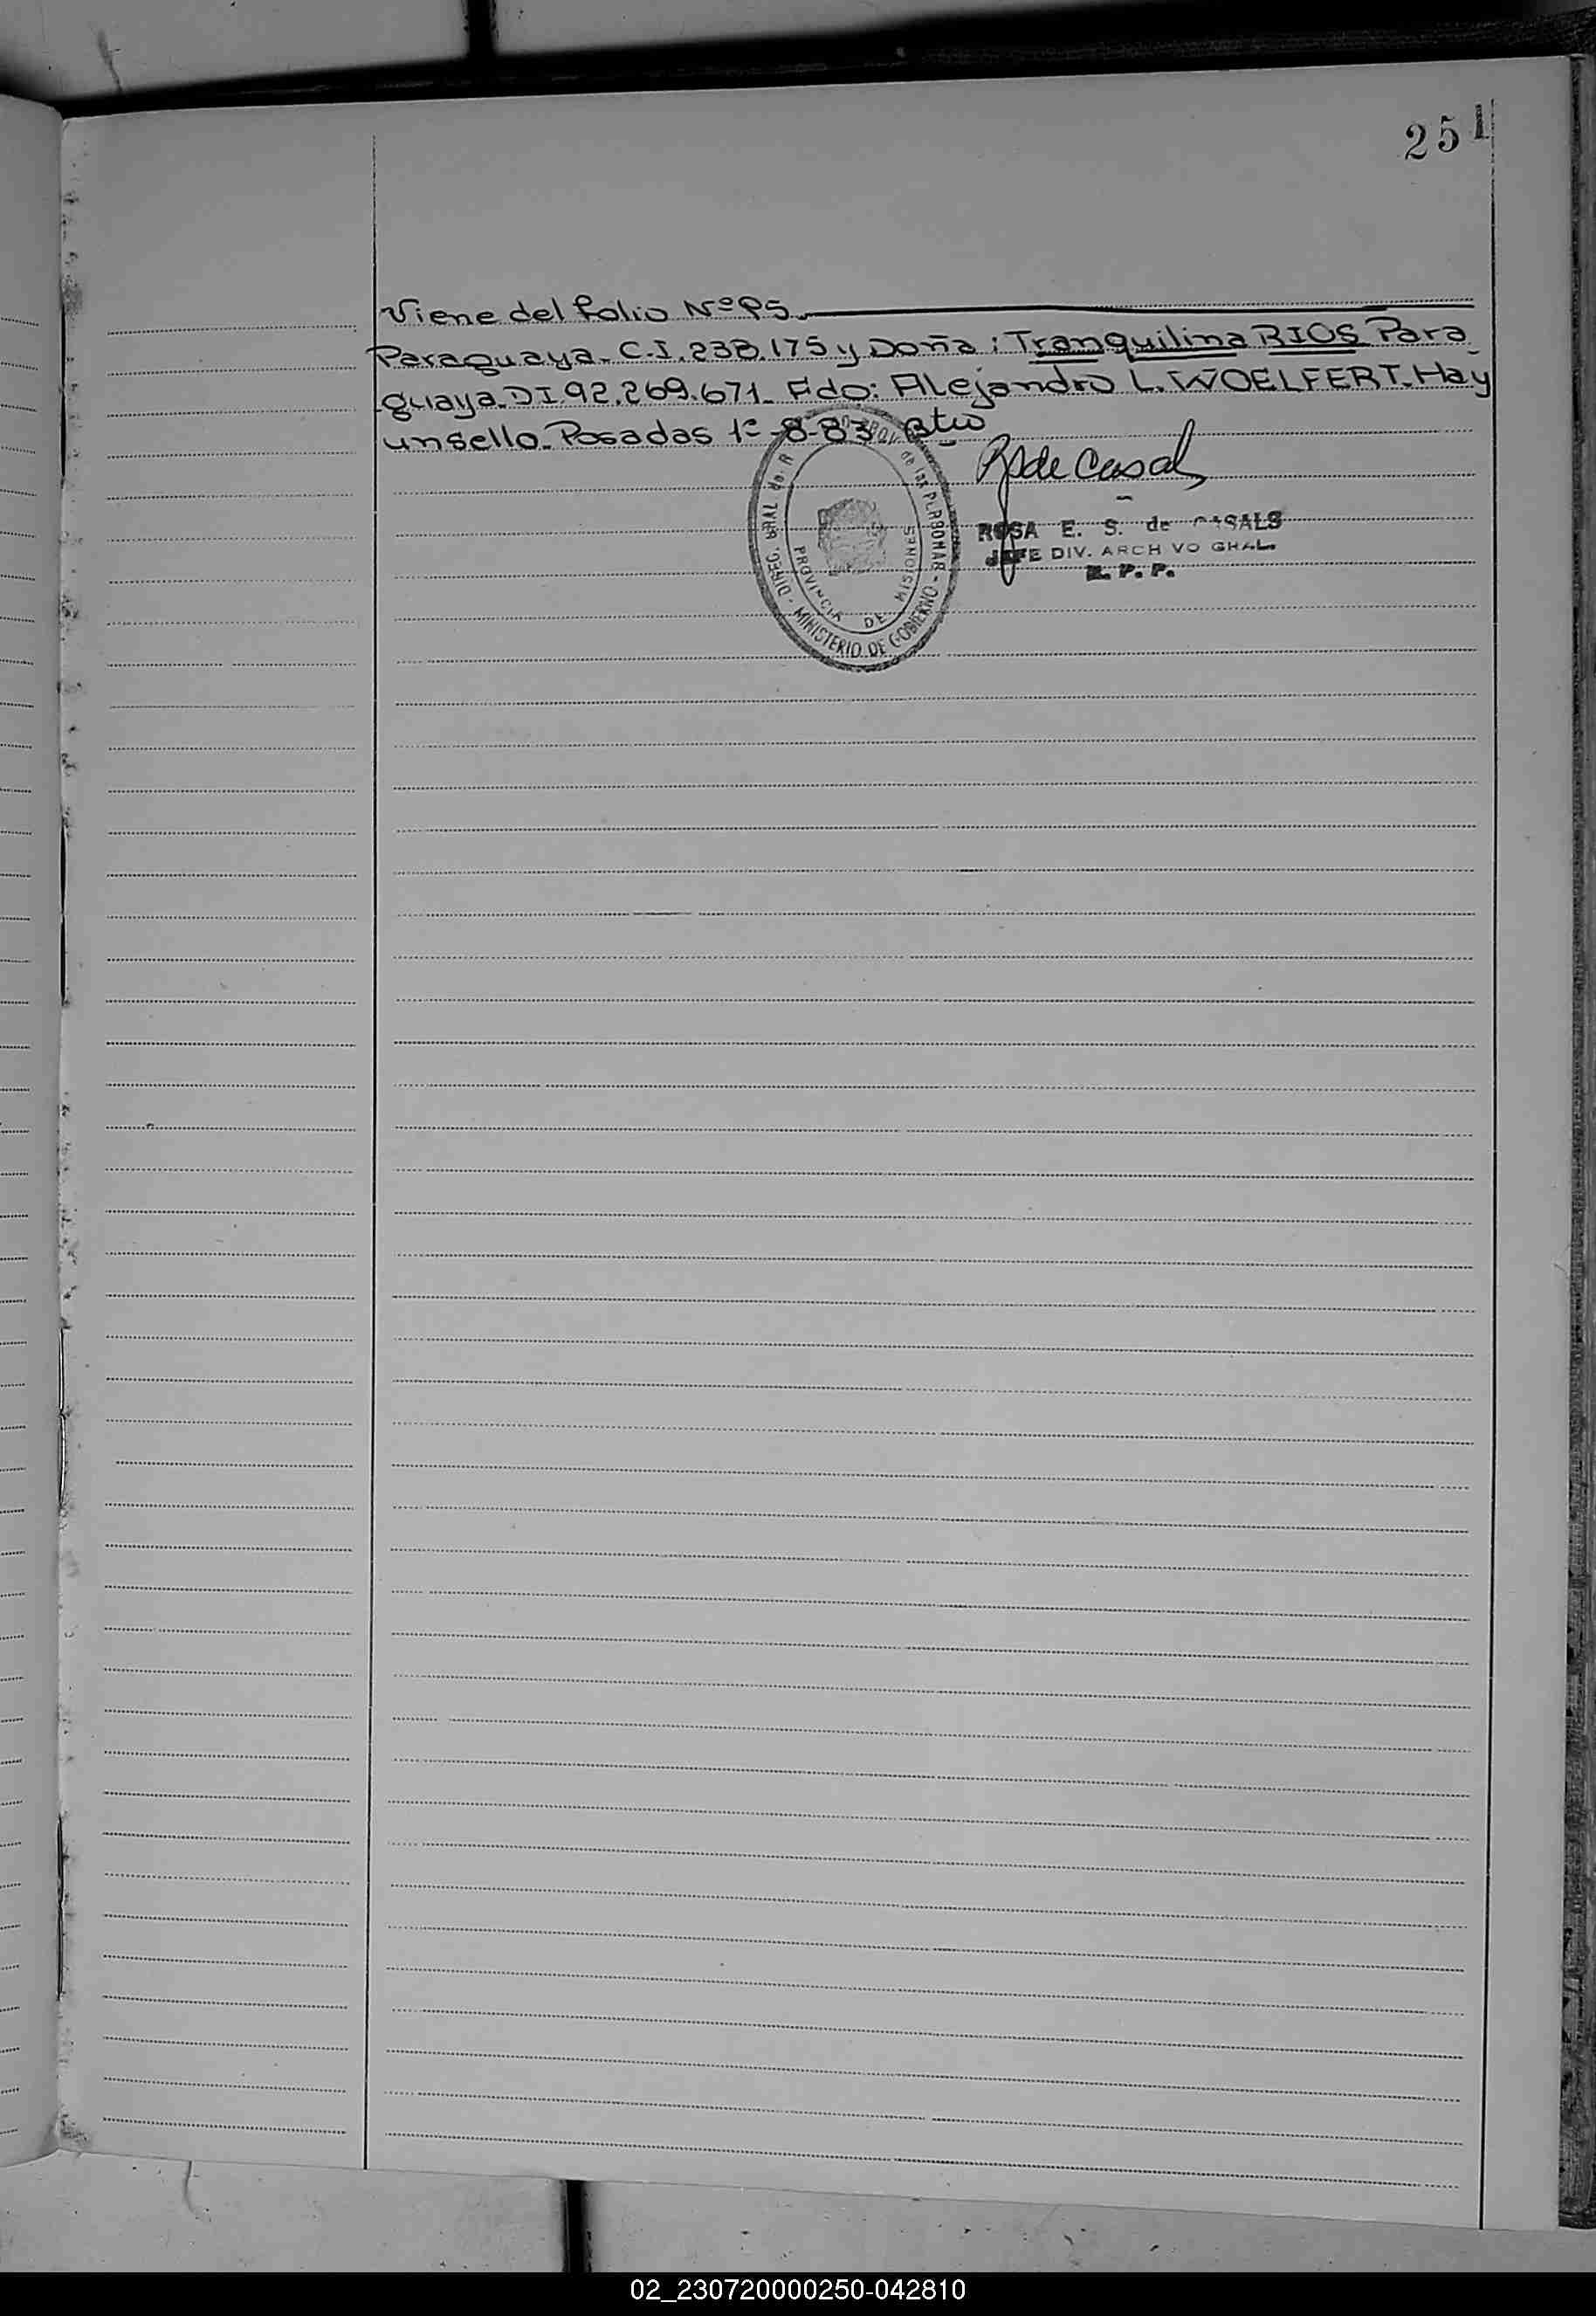 251
Viene del folio Nº 95.
Paraguaya. C.I. 238.175 y Doña: Tranquilina RIOS Para
guaya. DI 92.269.671. Fdo: Alejandro L. WOELFERT. Hay
un sello. Posadas 1º-8-83
R de Casals
ROSA E. S. de CASALS
JEFE DIV. ARCH VO GRAL.
R. P. P.
DIREC. GRAL de R PROV. de las PERSONAS - MINISTERIO DE GOBIERNO
PROVINCIA DE MISIONES
02_230720000250-042810